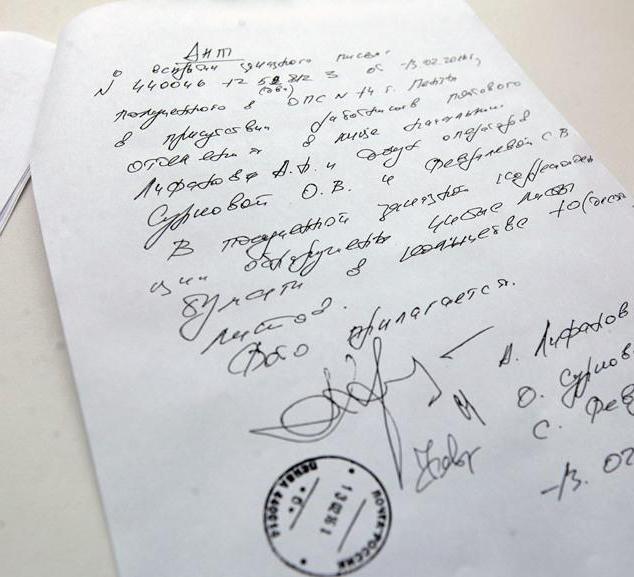 Акт
вскрытия заказного письма
N 440046 72 58812 3 от 13.02.2016г,
полученного в ОПС N 14 г. Пенза
в присутствии работников почтового
отделения в лице начальника
Лифанова А. и двух операторов
Сурковой О.В. и Февралевой С.В
В полученной заказной корреспонден
ции обнаружены чистые листы
бумаги в количестве 10 (
листов.
Фото прилагается.
А. Лифанов
О. Сурков
С. Фев
13. 02
ПОЧТА РОССИИ
ПЕНЗА 440014